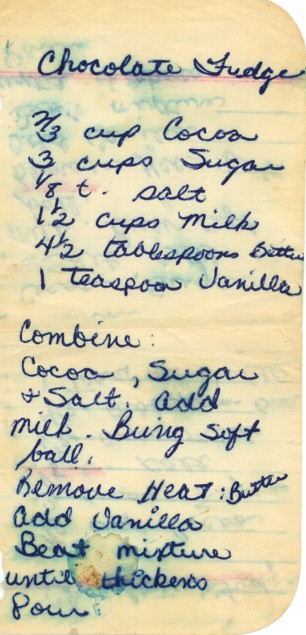 Chocolate Fudge
2/3 cup Cocoa
3 cups Sugar
1/8 t. salt
1 1/2 cups Milk
4 1/2 tablespoons Butter
1 teaspoon Vanilla
Combine:
Cocoa, Sugar
& Salt. add
milk. Bring soft
ball.
Remove Heat: Butter
Add Vanilla
Beat mixture
until thickens
Pour